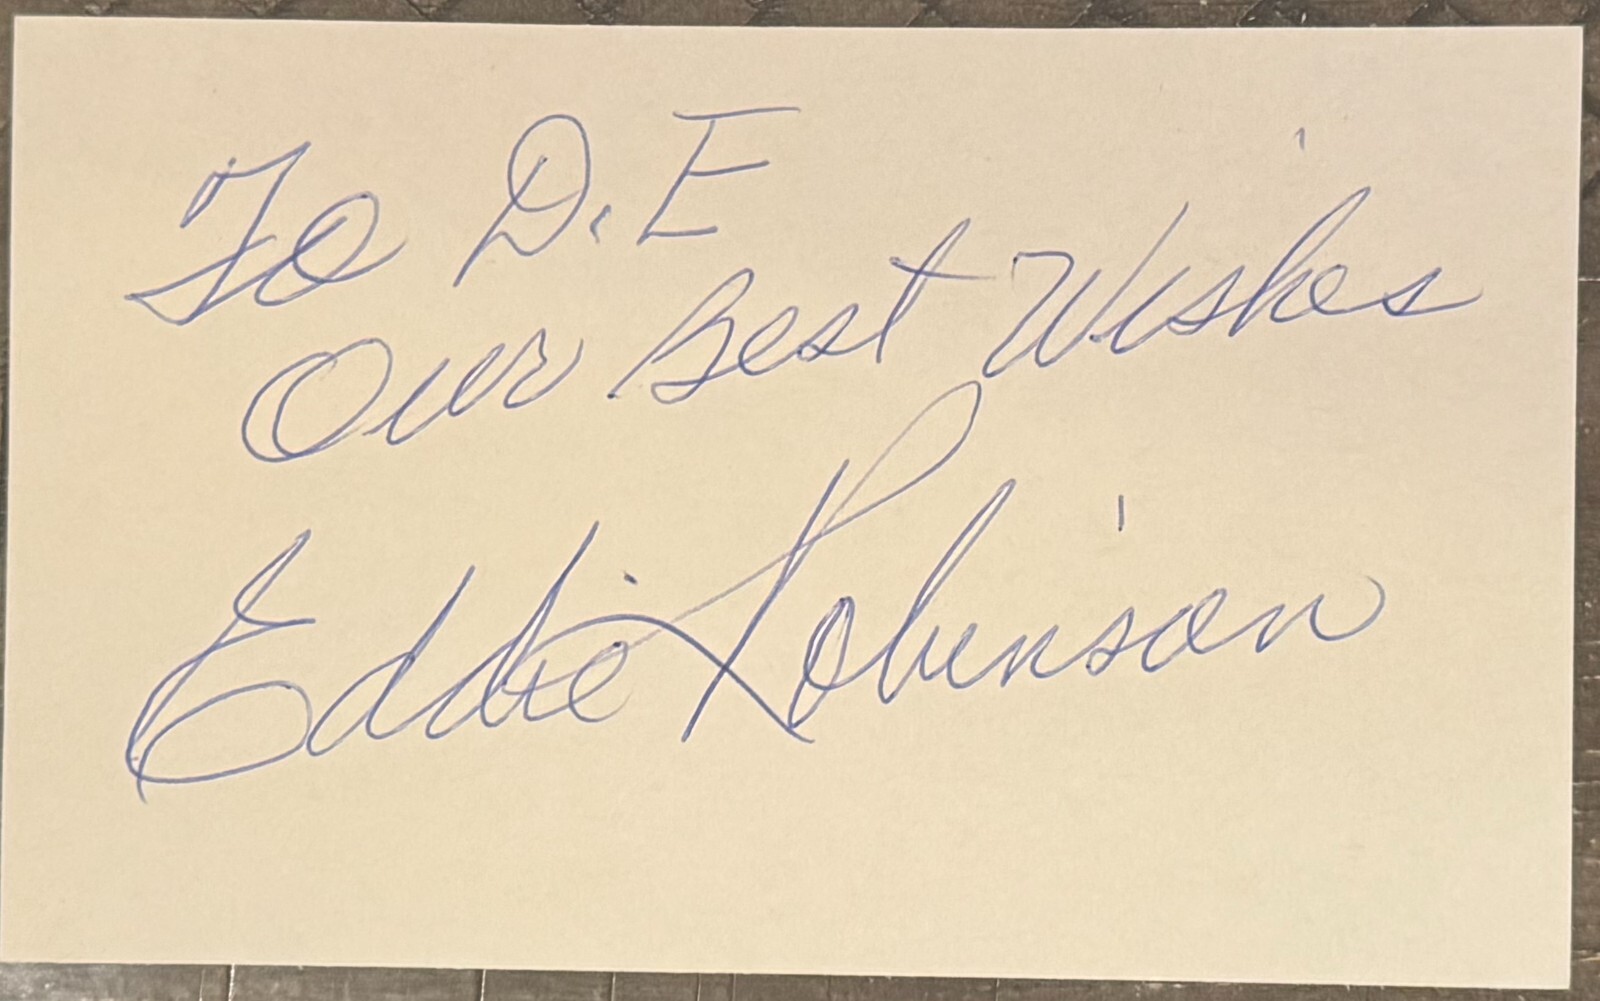 To D.E
Our Best Wishes
Eddie Robinson